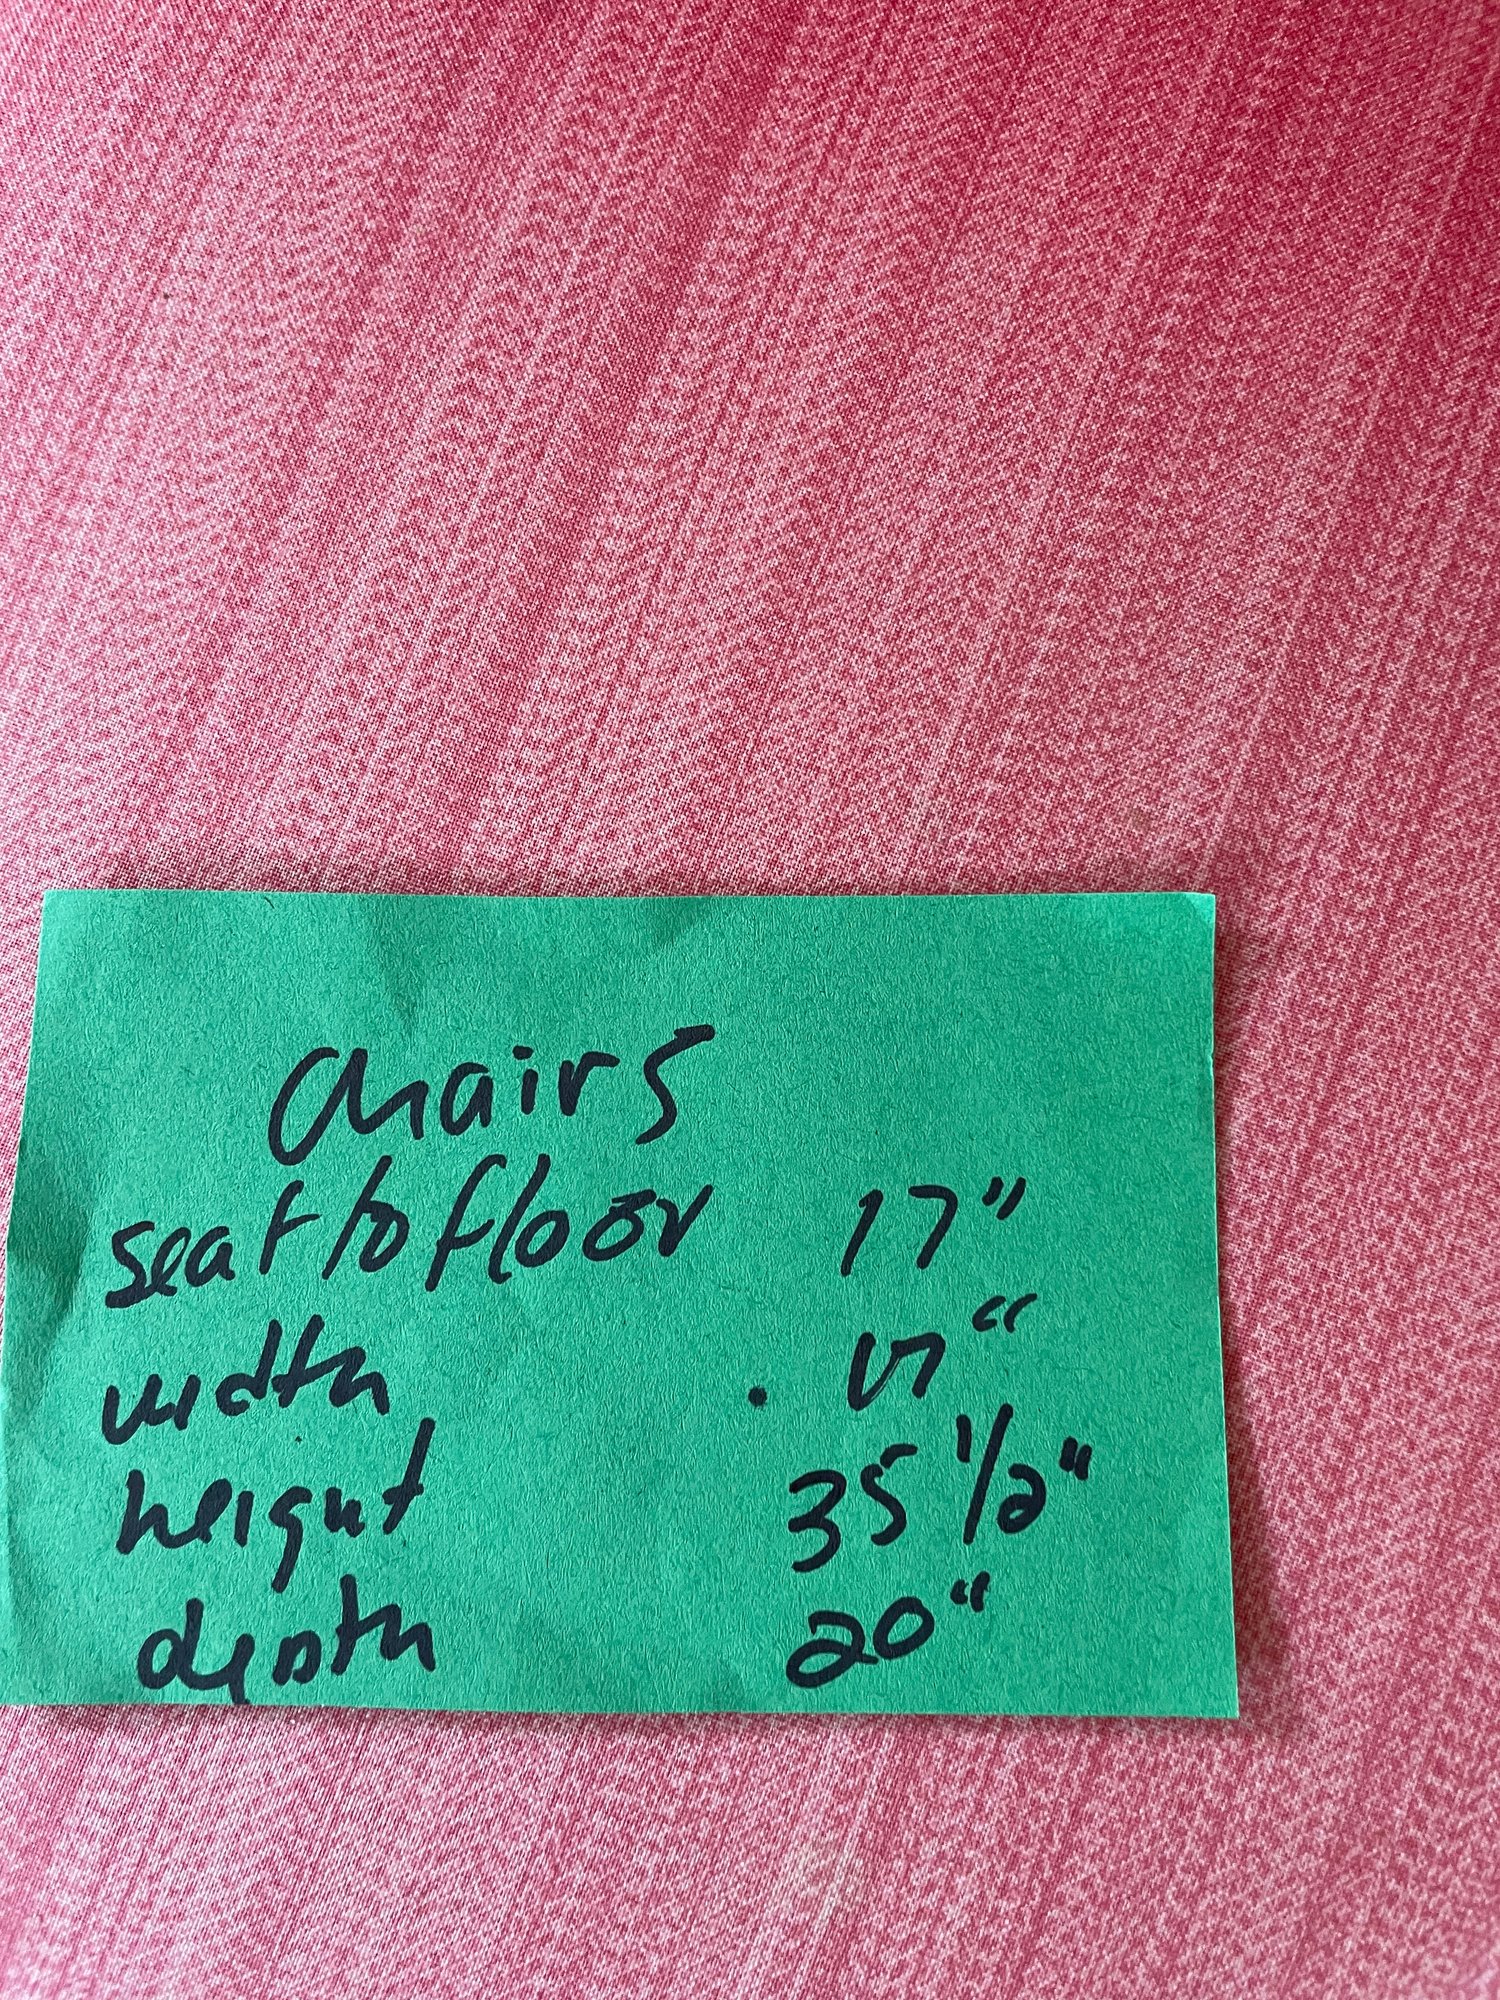 Chairs
seat to floor 17"
width . 17"
height 35 1/2"
depth 20"